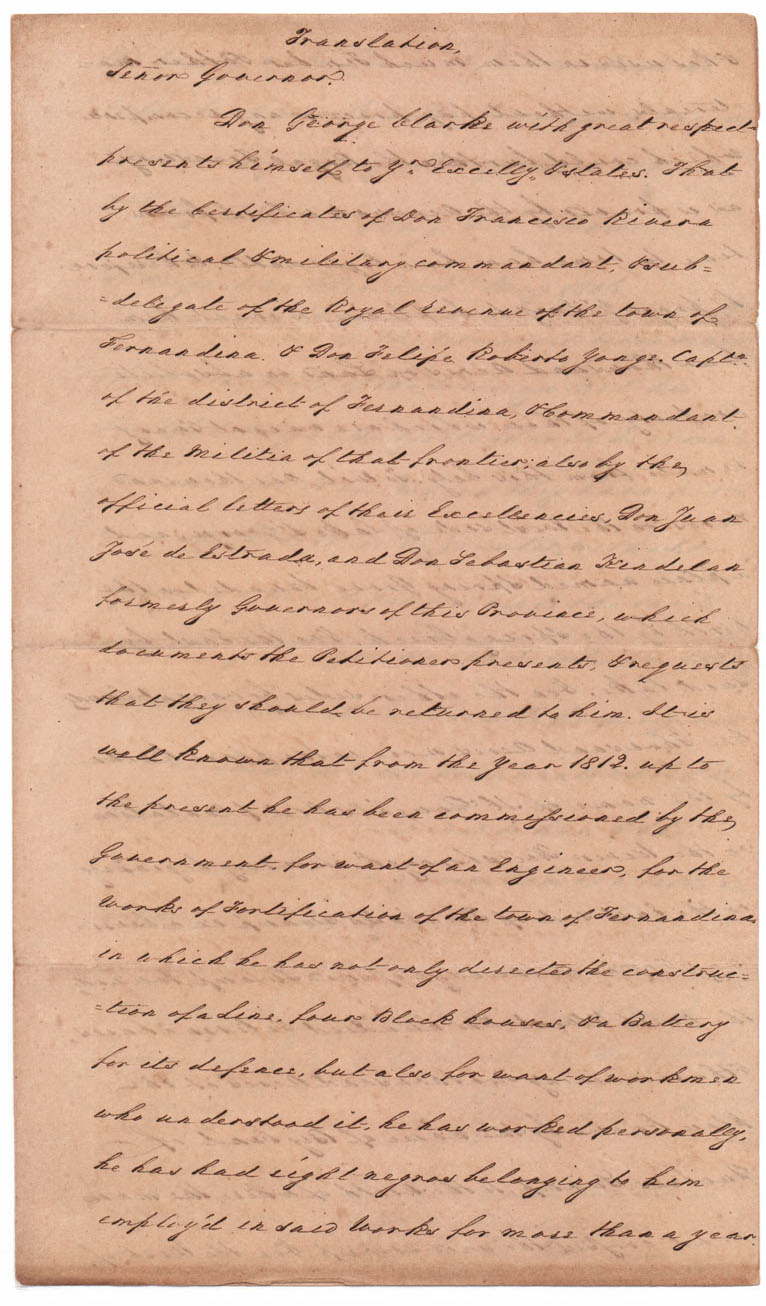 Translation,
Señor Governor.
Don George Clarke with great respect
presents himself to Yr. Excelly, & states. That
by the Certificates of Don Francisco Rivera
political & military commandant, & sub=
=delegate of the Royal Revenue of the town of
Fernandina. & Don Felipe Roberto Yonge. Captn.
of the district of Fernandina, & Commandant
of the Militia of that frontier; also by the
official letters of their Excellencies, Don Juan
José de Estrada, and Don Sebastian Kindelan
formerly Governors of this Province, which
documents the Petitioner presents, & requests
that they should be returned to him. It is
well known that from the Year 1812. up to
the present he has been commissioned by the
Government, for want of an Engineer, for the
Works of Fortification of the town of Fernandina
in which he has not only directed the construc=
=tion of a Line, four Block houses, & a Battery
for its defence, but also for want of workmen
who understood it, he has worked personally,
he has had eight negros belonging to him
employ'd in said Works for more than a year.